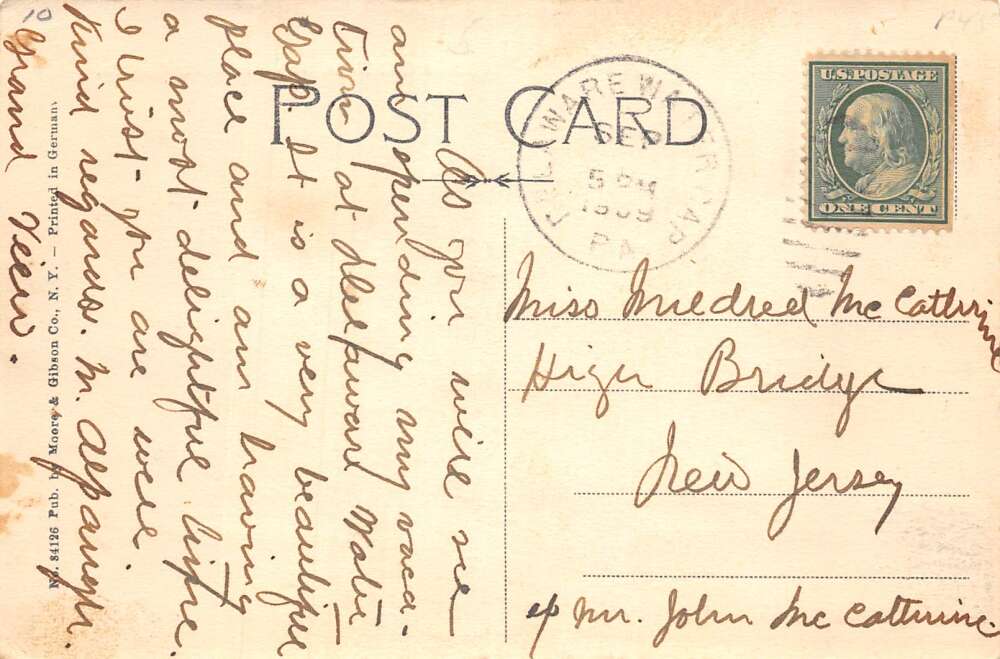 10
POST CARD
DELAWARE WATER GAP
SEP
5 PM
1909
PA
U.S. POSTAGE
ONE CENT
As you will see
am spending my vaca-
tion at Delaware Water
Gap. It is a very beautiful
place and am having
a most delightful time.
I trust you are well
Kind regards. M. Alpaugh.
Grand View.
Miss Mildred McCatherine
High Bridge
New Jersey
c/o Mr. John McCatherine.
No. 84126 Pub. by Moore & Gibson Co., N. Y. — Printed in Germany